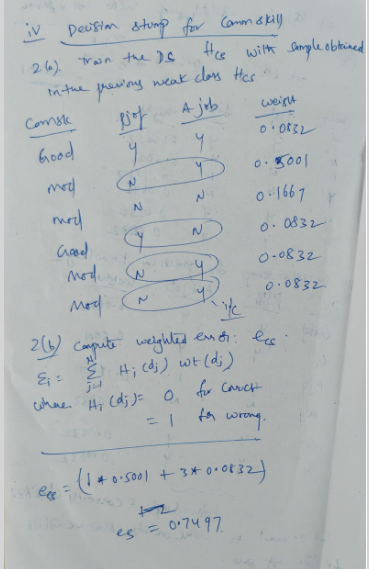 iv Decision stump for Comm skill
2(a). Train the DS Hcs with sample obtained
in the previous weak class Hcs.
Comsk Pjof A job weight
Good Y Y 0.0832
mod N Y 0.5001
mod N N 0.1667
Good Y N 0.0832
Mod N Y 0.0832
Mod N Y 0.0832
i/c
2(b) compute weighted error: ecs.
Ei = N Σ j=1 Hi (dj) wt (dj)
where Hi (dj) = 0 for correct
= 1 for wrong.
ecs = (1 * 0.5001 + 3 * 0.0832)
es = 0.7497.